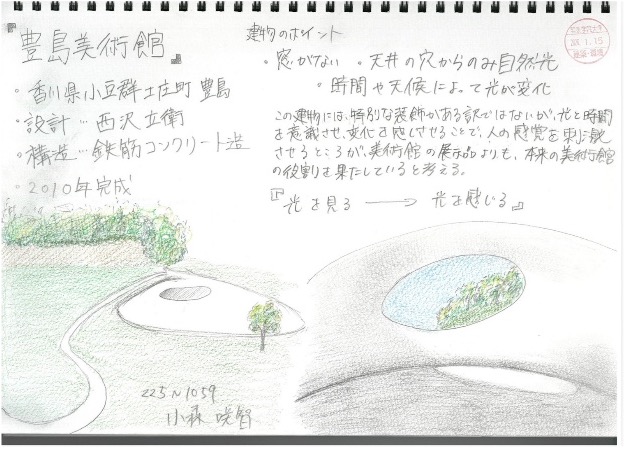 『豊島美術館』
・香川県小豆群土庄町 豊島
・設計…西沢立衛
・構造…鉄筋コンクリート造
・2010年完成
建物のポイント
・窓がない ・天井の穴からのみ自然光
・時間や天候によって光が変化
この建物には、特別な装飾がある訳ではないが、光と時間
を意識させ、変化を感じさせることで、人の感覚を刺激
させるところが、美術館の展示品よりも、本来の美術館
の役割を果たしていると考える。
『光を見る → 光を感じる』
225N1059
小森 咲智